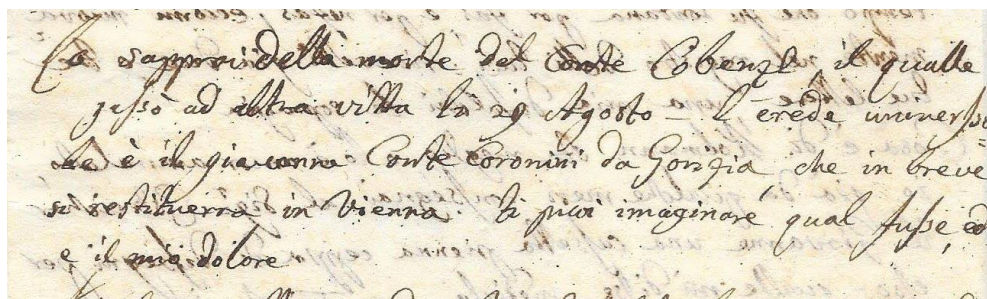 Cà sapprai della morte del Conte Cobenzl, il qualle
passò ad altra vitta li 29 Agosto – L'erede univers
le è il giovanne Conte Coronini da Gorizia, che in breve
si restituerra in Vienna. ti puoi imaginare qual fusse, ed
e il mio dolore